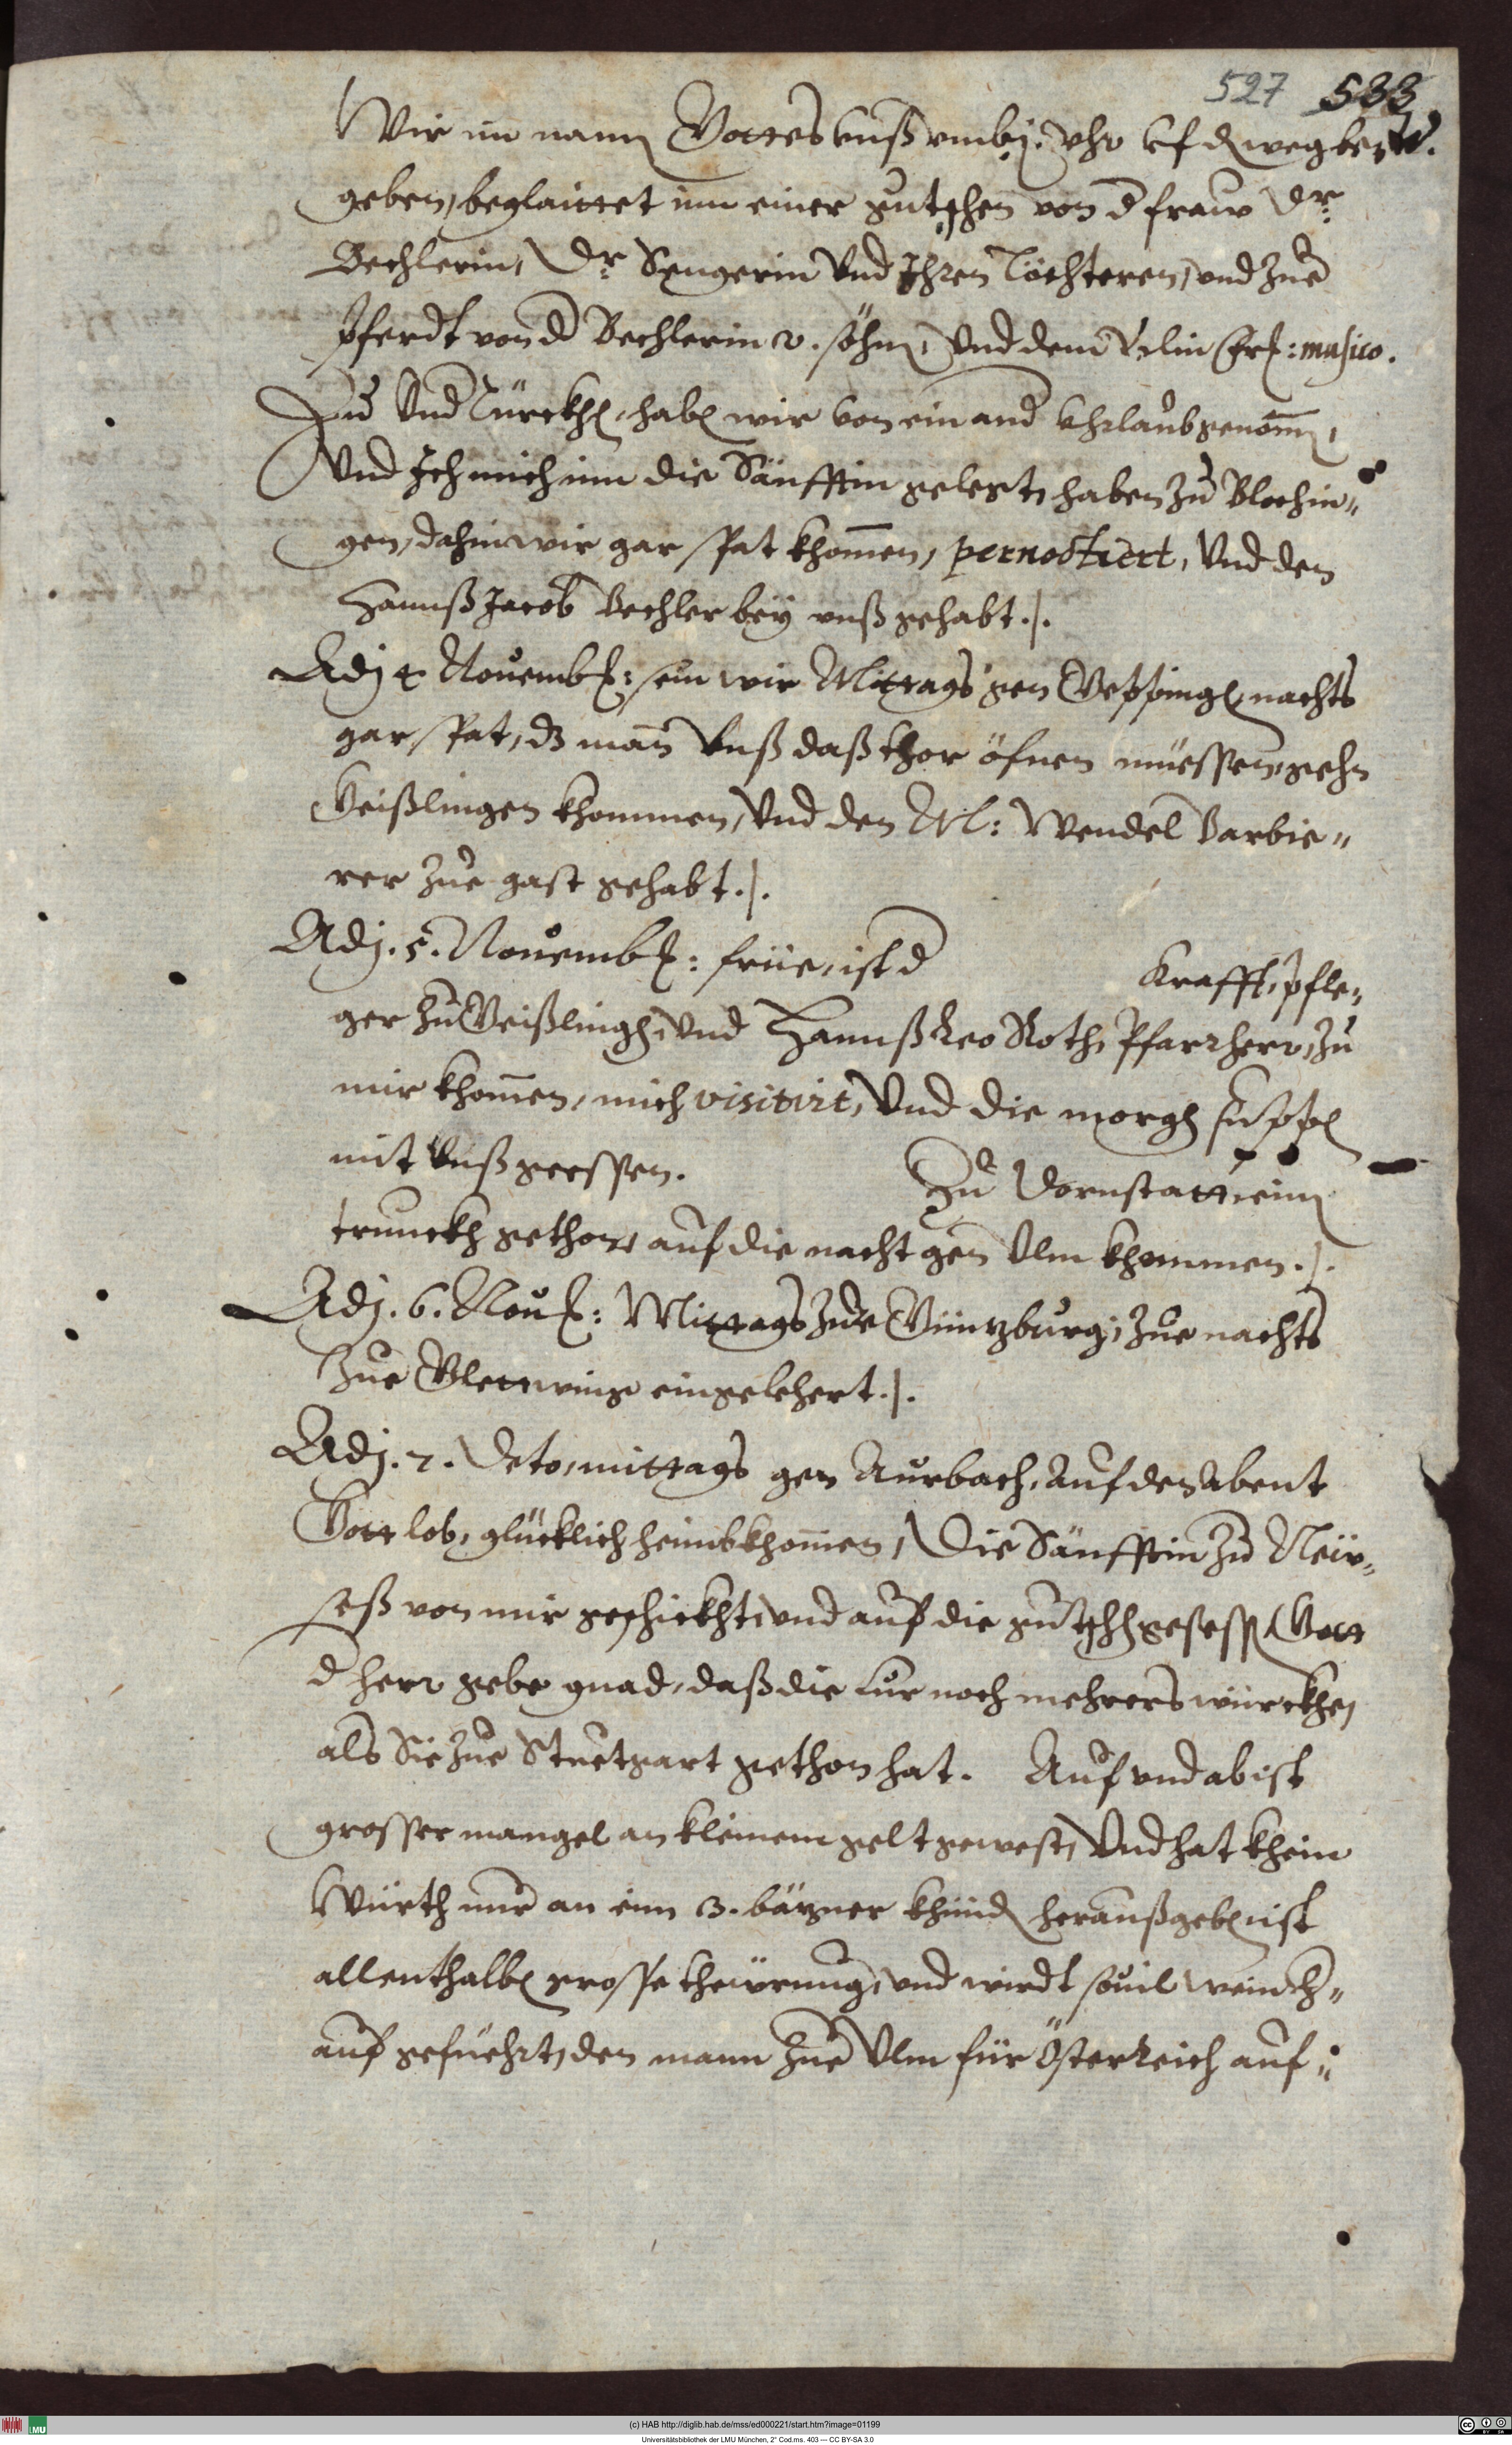 527 533
Wir im namen Gottes vnß vmb j. Vhr vf den weg be-
geben, beglaittet inn einer gutschen von der fraw Dr.
Bechlerin, Dr. Sengerin Vnd Ihren Töchteren, vnd zue
Pferdt von der Bechlerin 2. söhnen, Vnd dem Velin Frl: musico.
Zu Vnd Türckhen, haben wir von einander Vhrlaub genommen,
Vnd Ich mich inn die Sänfftin gelegt, haben zu Blochin-
gen, dahin wir gar spat khommen, pernoctiert, Vnd den
Hannß Jacob Bechler bey vnß gehabt. /.
Adj 4 Nouembr: sein wir Mittags gen Geppingen, nachts
gar spat, dz mann Vnß daß thor öfnen müessen, gehn
Geißlingen khommen, Vnd den M: Wendel Barbie-
rer zue gast gehabt. /.
Adj. 5. Nouembr: früe, ist der Krafft, pfle-
ger zu Geißlingen, Vnd Hannß Leo Roth, Pfarrherr, zu
mir khommen, mich visitirt, Vnd die morgen suppen
mit Vnß geessen. Zu Dornstatt einen
trunckh gethon, auf die nacht gen Vlm khommen. /.
Adj. 6. Nour: Mittags zue Güntzburg, zue nachts
zue Glettwing eingekhert. /.
Adj. 7. Deto, mittags gen Aurbach, Auf den Abent
Gott lob, glücklich heimbkhommen, Die Sänfftin zu Neür-
seß von mir geschickht, vnd auf die gutschen gesessen, Gott
der herr gebe gnad, daß die cur noch mehrers würckhe,
als Sie zue Stuetgart gethon hat. Auf vnd ab ist
grosser mangel an kleinem gelt gewest, Vnd hat khein
Würth mir an einen 3. bätzner khünden heraußgeben, ist
allenthalben grosse theürung, vnd wirdt souil wein
auf gefüehrt, den mann zue Vlm für Österreich auf-
(c) HAB http://diglib.hab.de/mss/ed000221/start.htm?image=01199
Universitätsbibliothek der LMU München, 2° Cod.ms. 403 — CC BY-SA 3.0